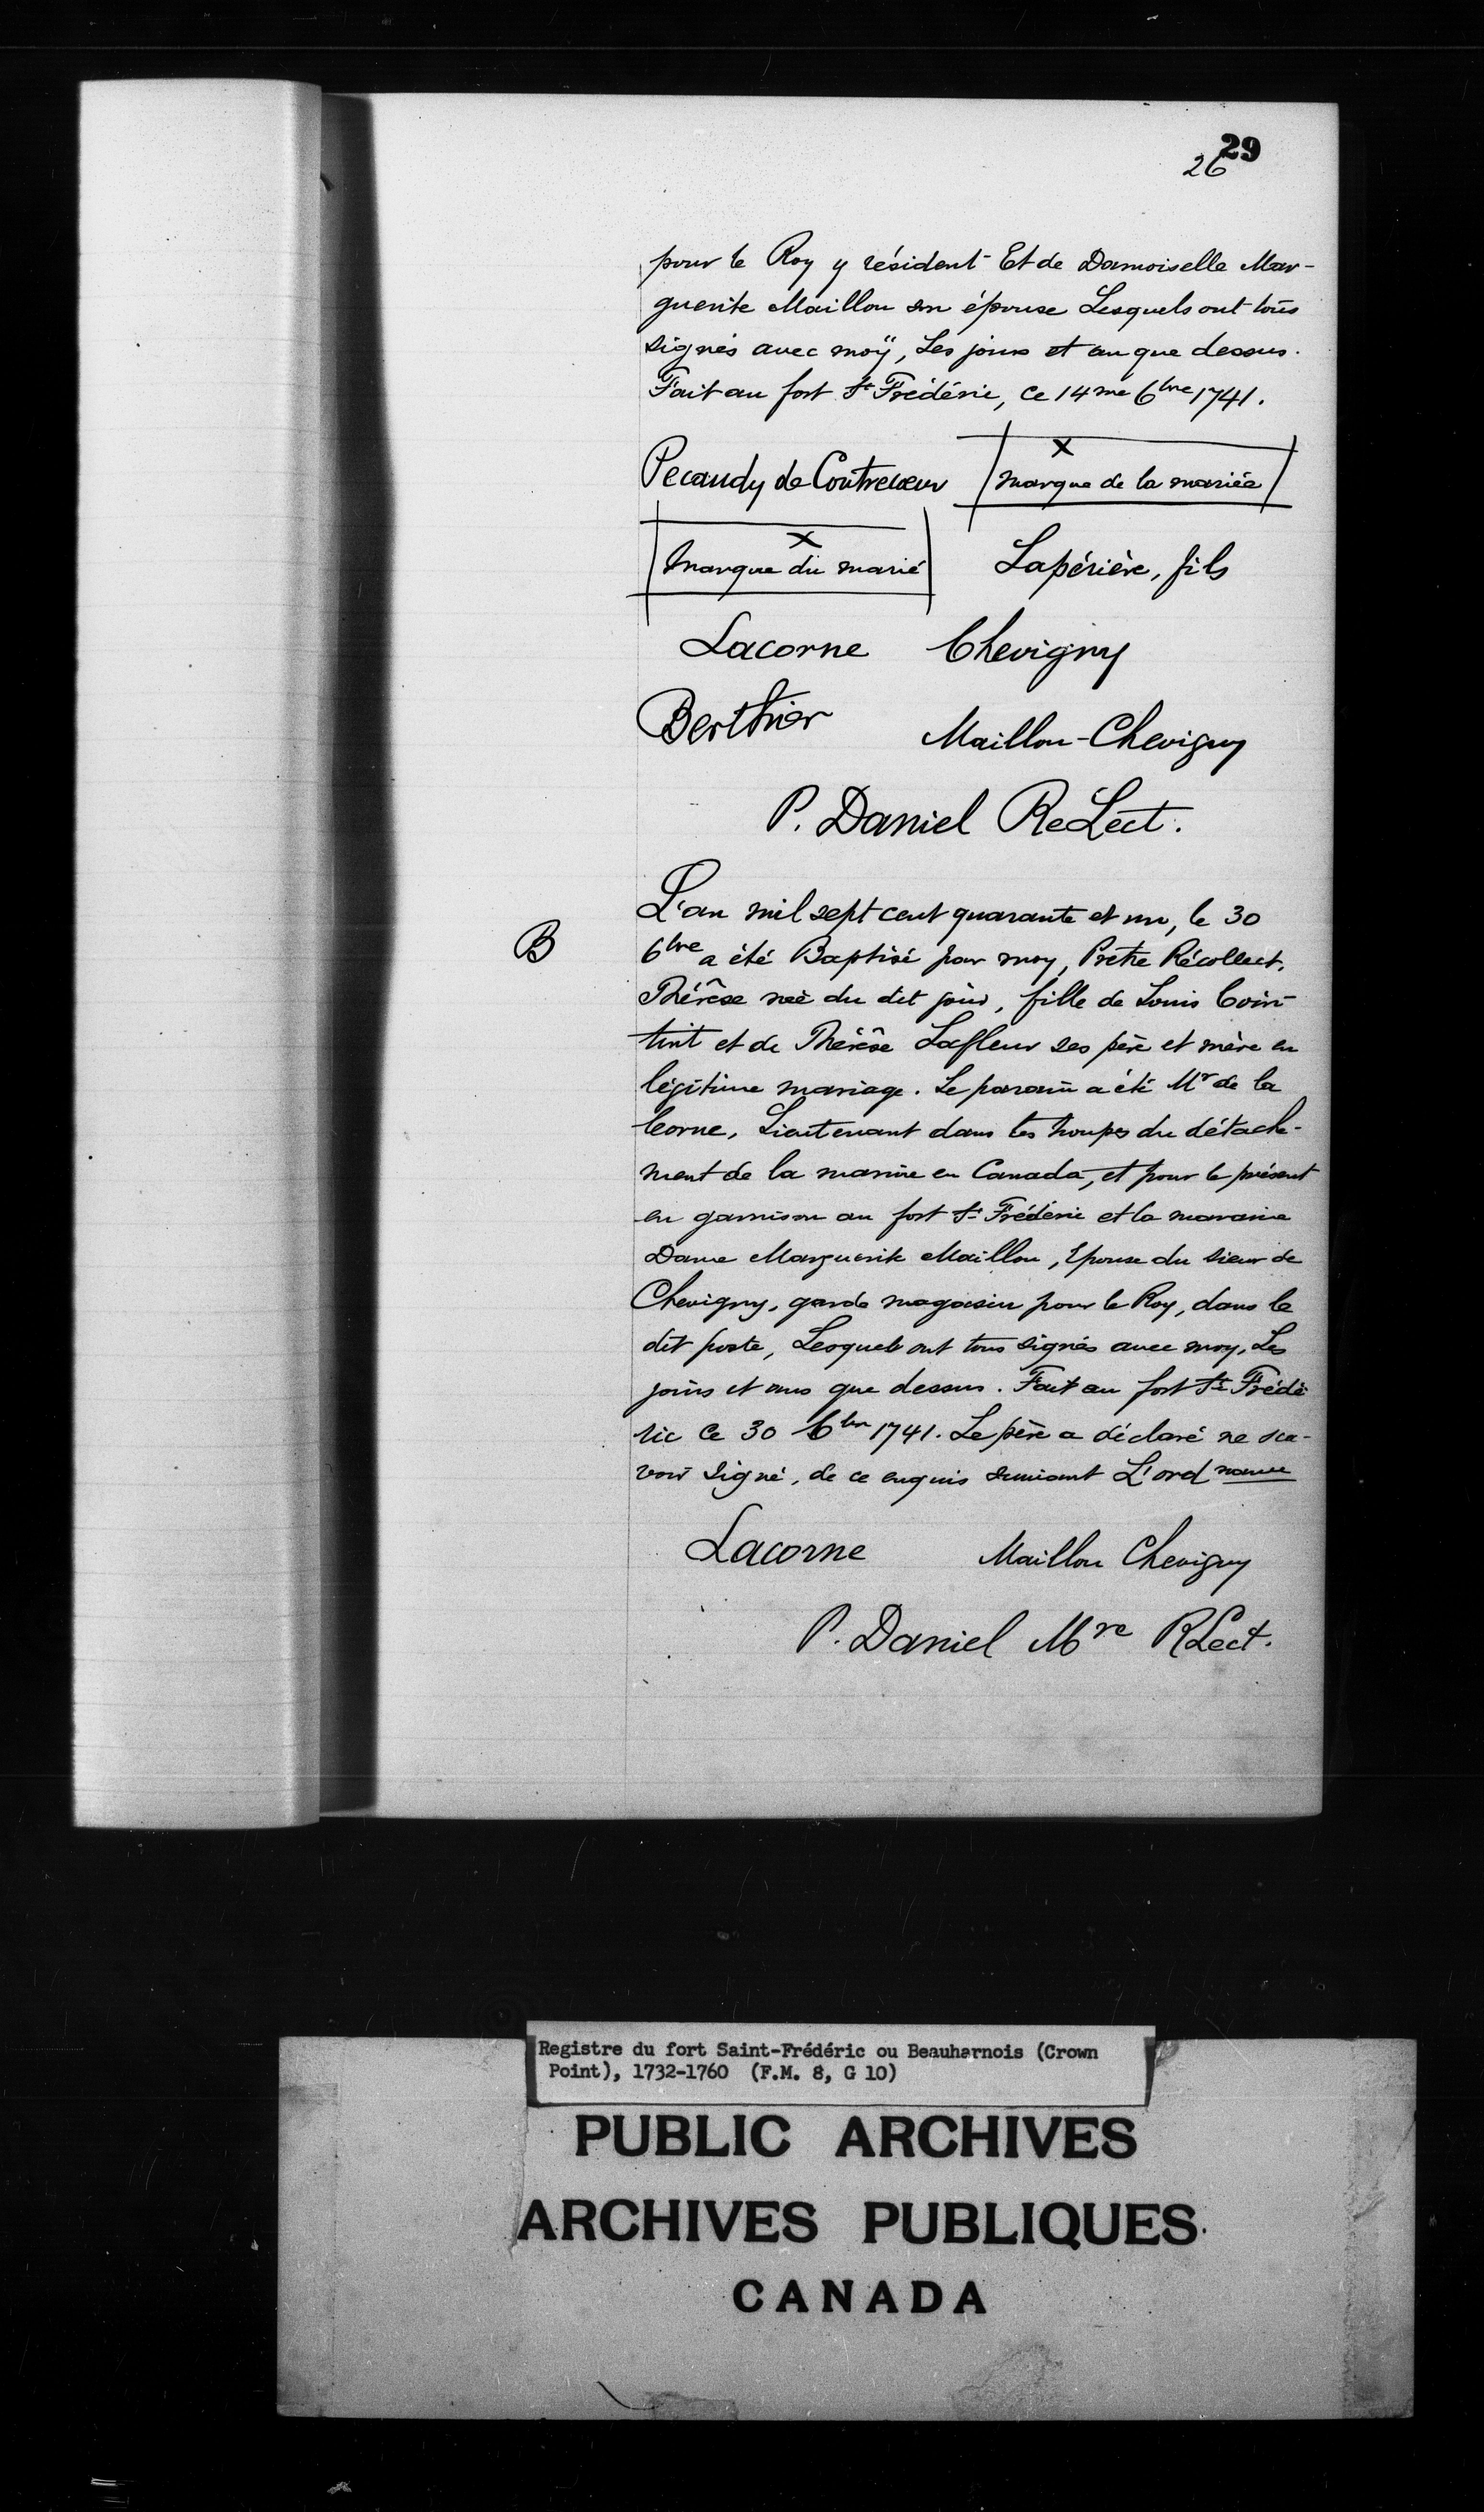 29
26
pour le Roy y résident Et de Damoiselle Mar-
guerite Maillou son épouse Lesquels ont tous
signés avec moÿ, Les jours et an que dessus.
Fait au fort St Frédéric, Ce 14me 6bre 1741.
Pecaudy de Contrecœur X marque de la mariée
X marque du marié Lapérière, fils
Lacorne Chevigny
Berthier Maillou-Chevigny
P. Daniel ReLect.
L'an mil sept cent quarante et un, le 30
B 6bre a été Baptisé par moy, Prêtre Récollect,
Thérèse née du dit jour, fille de Louis Coin-
tint et de Thérèse Lafleur ses père et mère en
légitime mariage. Le parain a été Mr de la
Corne, Lieutenant dans les troupes du détache-
ment de la marine en Canada, et pour le présent
en garnison au fort St Frédéric et la maraine
Dame Marguerite Maillou, Epouse du sieur de
Chevigny, garde magasin pour le Roy, dans le
dit poste, Lesquels ont tous signés avec moy, Les
jours et ans que dessus. Fait au fort St Frédé
ric Ce 30 6bre 1741. Le père a déclaré ne sca-
voir signé, de ce enquis suivant L'ord nance
Lacorne Maillou Chevigny
P. Daniel Mre RLect.
Registre du fort Saint-Frédéric ou Beauharnois (Crown
Point), 1732-1760 (F.M. 8, G 10)
PUBLIC ARCHIVES
ARCHIVES PUBLIQUES
CANADA